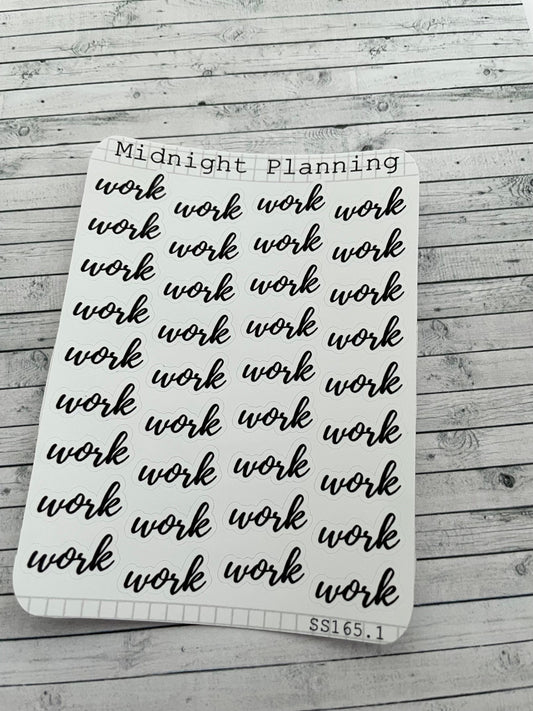 Midnight Planning
work work work work
work work work work
work work work work
work work work work
work work work work
work work work work
work work work work
work work work work
work work work work
SS165.1